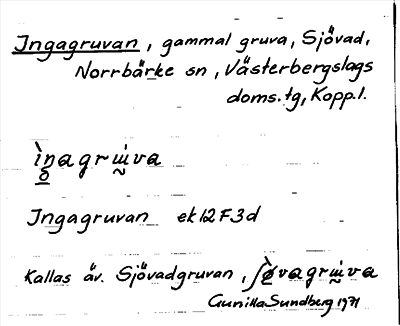 Ingagruvan, gammal gruva, Sjövad,
Norrbärke sn, Västerbergslags
doms. tg, Kopp. l.
Ingagruvan ek 12F3d
Kallas äv. Sjövadgruvan,
Gunilla Sundberg 1971